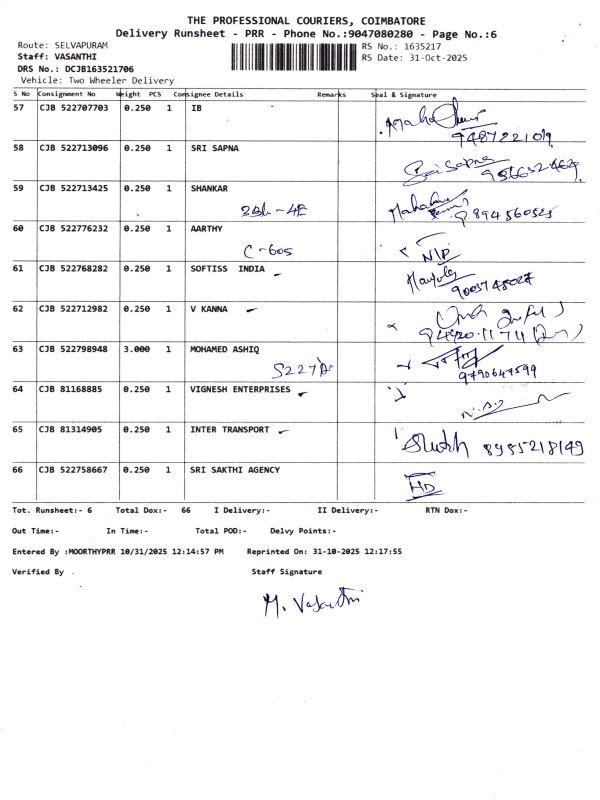 THE PROFESSIONAL COURIERS, COIMBATORE
Delivery Runsheet - PRR - Phone No.:9047080280 - Page No.:6
Route: SELVAPURAM RS No.: 1635217
Staff: VASANTHI RS Date: 31-Oct-2025
DRS No.: DCJB163521706
Vehicle: Two Wheeler Delivery
S No Consignment No Weight PCS Consignee Details Remarks Seal & Signature
57 CJB 522707703 0.250 1 IB
58 CJB 522713096 0.250 1 SRI SAPNA
Sri Sapna
59 CJB 522713425 0.250 1 SHANKAR
60 CJB 522776232 0.250 1 AARTHY
C-605
61 CJB 522768282 0.250 1 SOFTISS INDIA
62 CJB 522712982 0.250 1 V KANNA
63 CJB 522798948 3.000 1 MOHAMED ASHIQ
9790647599
64 CJB 81168885 0.250 1 VIGNESH ENTERPRISES
65 CJB 81314905 0.250 1 INTER TRANSPORT
8955218149
66 CJB 522758667 0.250 1 SRI SAKTHI AGENCY
HD
Tot. Runsheet:- 6 Total Dox:- 66 I Delivery:- II Delivery:- RTN Dox:-
Out Time:- In Time:- Total POD:- Delvy Points:-
Entered By :MOORTHYPRR 10/31/2025 12:14:57 PM Reprinted On: 31-10-2025 12:17:55
Verified By . Staff Signature
M. Vasanthi